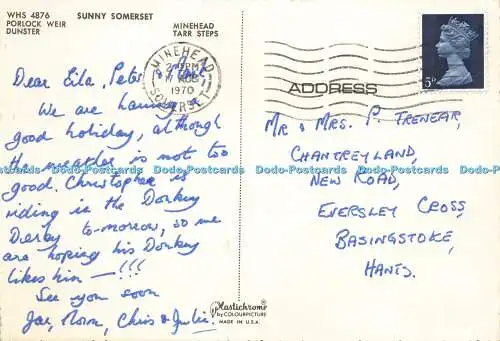 WHS 4876 SUNNY SOMERSET
PORLOCK WEIR MINEHEAD
DUNSTER TARR STEPS
MINEHEAD
PM
AUG
1970
SOMERSET
5D
ADDRESS
Dear Eila, Peter &
We are having a
good holiday, although
the weather is not too
good. Christopher is
riding in the Donkey
Derby to-morrow, so we
are hoping his Donkey
likes him — !!!
See you soon
Joe, Norn, Chris & Julie.
Mr & Mrs. P. Trenear,
CHANTREYLAND,
NEW ROAD,
EVERSLEY CROSS,
BASINGSTOKE,
HANTS.
Plastichrome
by COLOURPICTURE
MADE IN U.S.A.
Dodo-Postcards Dodo-Postcards Dodo-Postcards Dodo-Postcards Dodo-Postcards